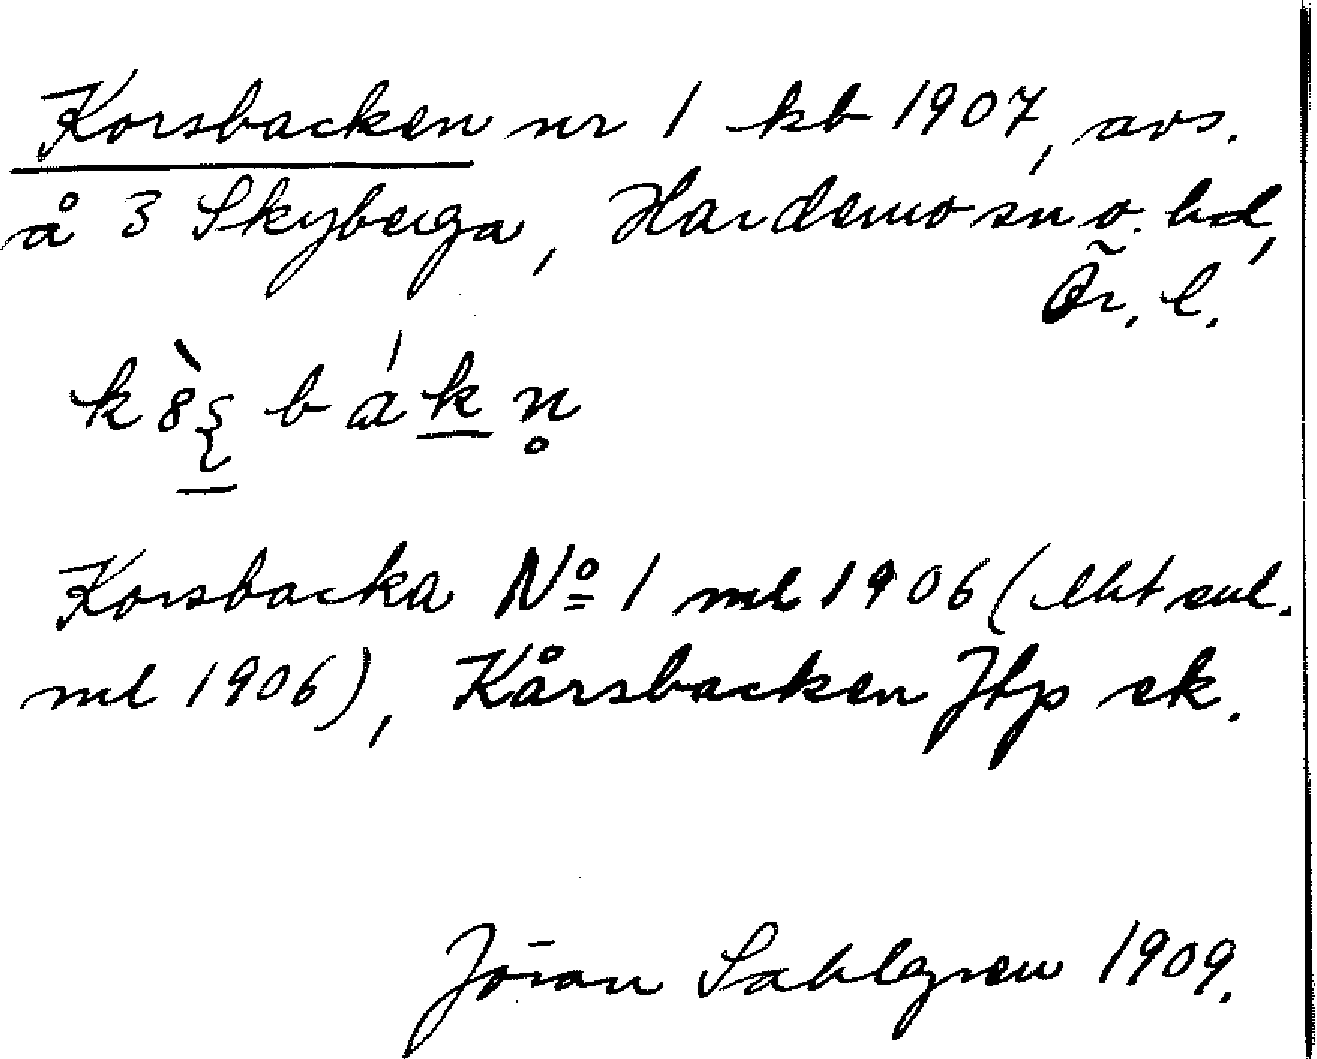 Korsbacken nr 1 kb 1907, avs.
å 3 Skyberga, Hardemo sn o. hd,
Ör. l.
Korsbacka No 1 ml 1906 (likt enl.
ml 1906), Kårsbacken Jfp ek.
Jöran Sahlgren 1909.